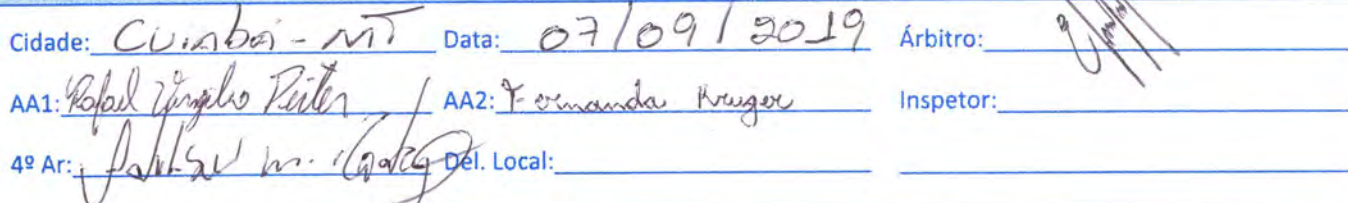 Cidade: Cuiabá - MT Data: 07/09/2019 Árbitro:
AA1: Rafael AA2: Fernanda Kruger Inspetor:
4º Ar: m. Del. Local: